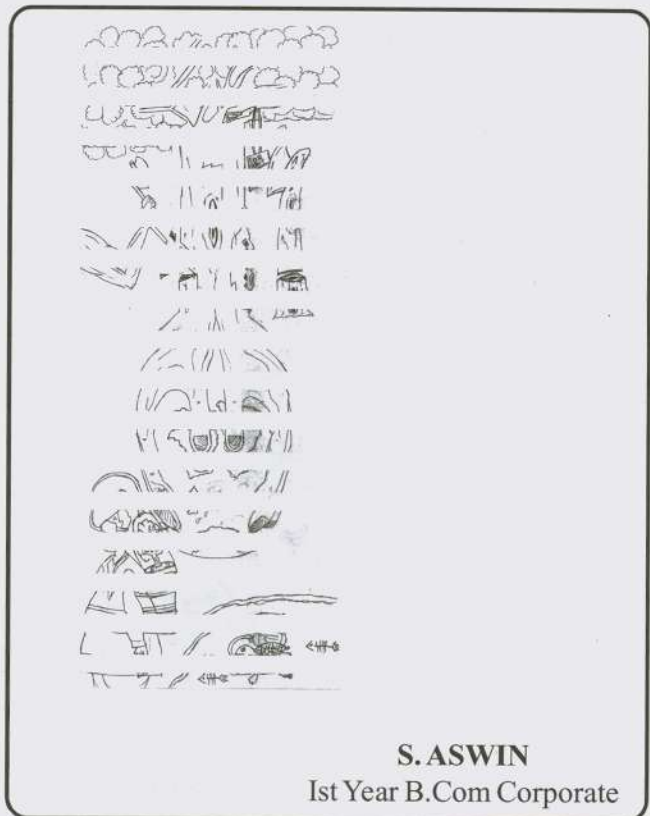 S. ASWIN
Ist Year B.Com Corporate